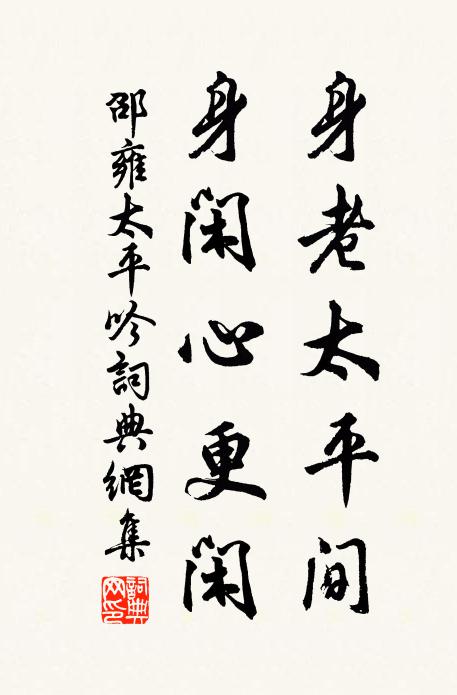 身老太平間
身閑心更閑
邵雍太平吟詞典網集
詞典網印